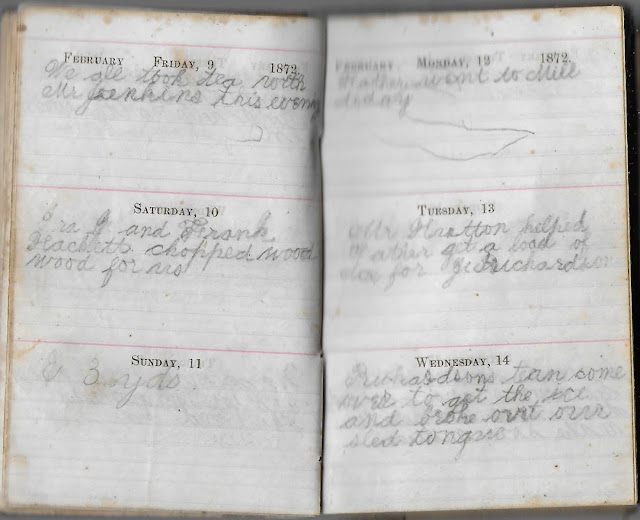 February Friday, 9 1872.
We all took tea with
Mr Jenkins this evening
Saturday, 10
Ira J and Frank
Hackett chopped wood
wood for us
Sunday, 11
3 yds
February Monday, 12 1872.
Father went to Mill
today
Tuesday, 13
Mr Stratton helped
Father get a load of
ice for Richardson
Wednesday, 14
Richardsons team come
over to get the ice
and broke out our
sled tongue